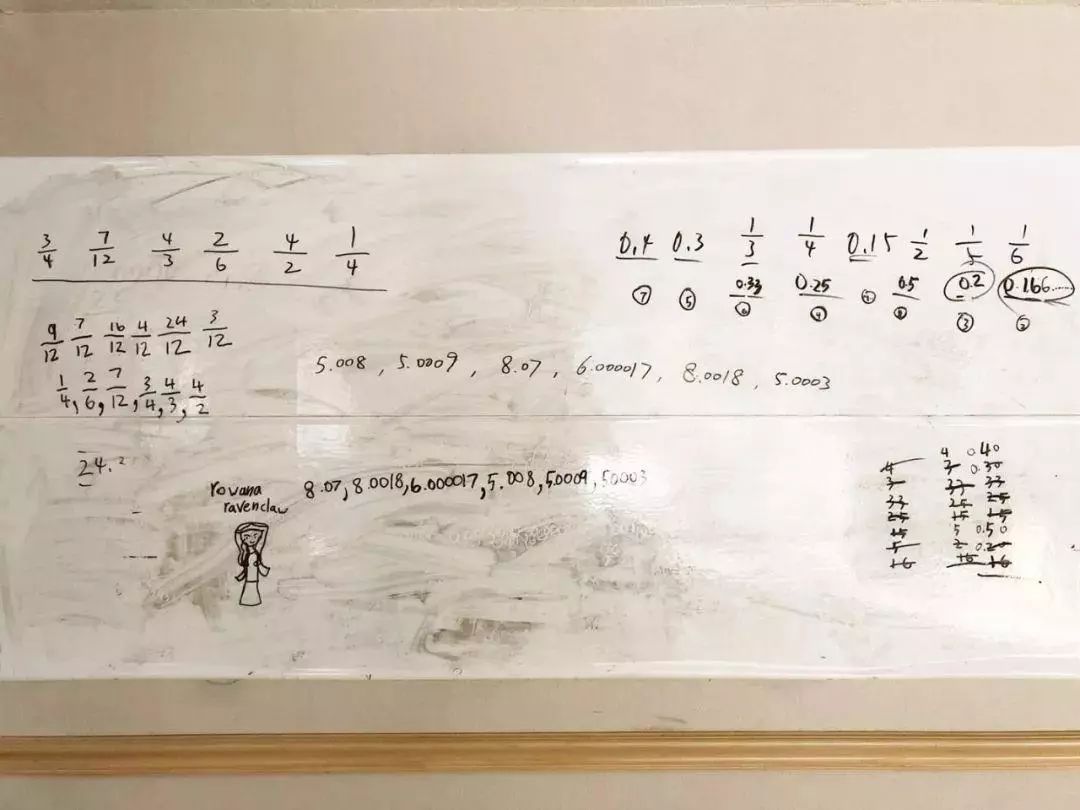 3/4 7/12 4/3 2/6 4/2 1/4
9/12 7/12 16/12 4/12 24/12 3/12
1/4, 2/6, 7/12, 3/4, 4/3, 4/2
0.4 0.3 1/3 1/4 0.15 1/2 1/5 1/6
0.33 0.25 0.5 0.2 0.166.....
⑦ ⑤ ⑥ ④ ⑧ ③ ②
5.008, 5.0009, 8.07, 6.000017, 8.0018, 5.0003
24.2
rowana
ravenclaw
8.07, 8.0018, 6.000017, 5.008, 5.0009, 5.0003
4 0.40
4 3 0.30
3 33 33
33 25 25
25 15 15
15 5 0.50
5 2 0.20
16 16 16